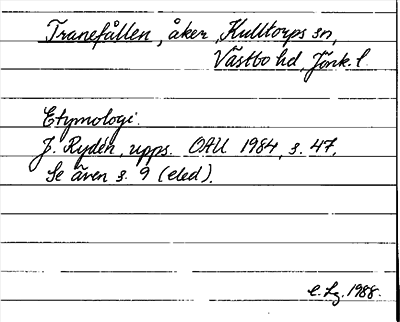 Tranefållen, åker, Kulltorps sn,
Västbo hd, Jönk. l.
Etymologi.
J. Rydén, upps. OAU 1984, s. 47.
Se även s. 9 (eled).
E. Lg. 1988.